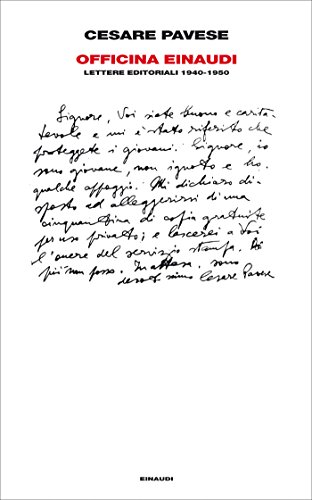 CESARE PAVESE
OFFICINA EINAUDI
LETTERE EDITORIALI 1940-1950
Signore, Voi siete buono e cari-
tatevole e mi è stato riferito che
proteggete i giovani. Signore, io
sono giovane, non ignoto e ho
qualche appoggio. Mi dichiaro di-
sposto ad alleggerirvi di una
cinquantina di copie gratuite
per uso privato; e lascerei a Voi
l'onere del servizio stampa. Di
più non posso. In attesa, sono
Cesare Pavese
EINAUDI